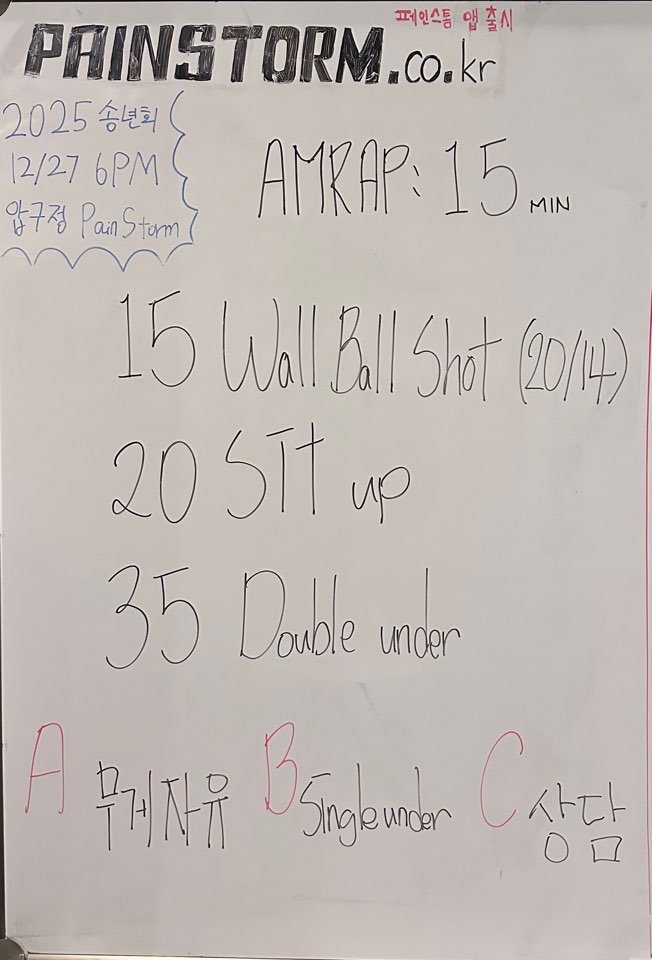 페인스톰 앱 출시
PAINSTORM.co.kr
2025 송년회
12/27 6PM
압구정 PainStorm
AMRAP: 15 MIN
15 Wall Ball Shot (20/14)
20 SIt up
35 Double under
A 무게자유 B Single under C 상담